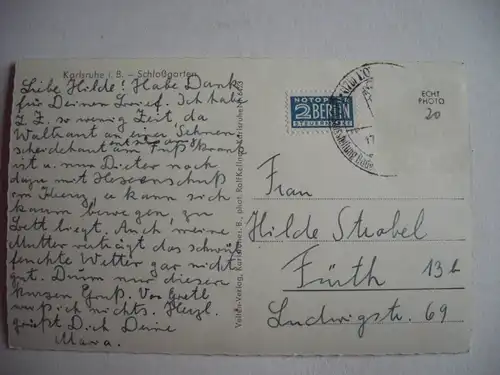 Karlsruhe i. B. – Schloßgarten
Liebe Hilde! Habe Dank
für Deinen Brief. Ich habe
z. Z. so wenig Zeit, da
Waltraut an einer Sehnen-
scheidehaut am Fuß krank
ist u. nun Dieter noch
dazu mit Hexenschuß
im Kreuz u. kaum sich
kaum bewegen, zu
Bett liegt. Auch meine
Mutter verträgt das schwül
feuchte Wetter gar nicht
gut. Drum nur diesen
kurzen Gruß. Von Gretl
nichts. Herzl.
grüßt Dich Deine
Mara.
Verlag, Karlsruhe i. B., phot. Rolf Kellner, Karlsruhe
NOTOPFER
2 BERLIN
STEUERMARKE
ECHT
PHOTO
20
17
Frau
Hilde Strobel
Fürth 13b
Ludwigstr. 69